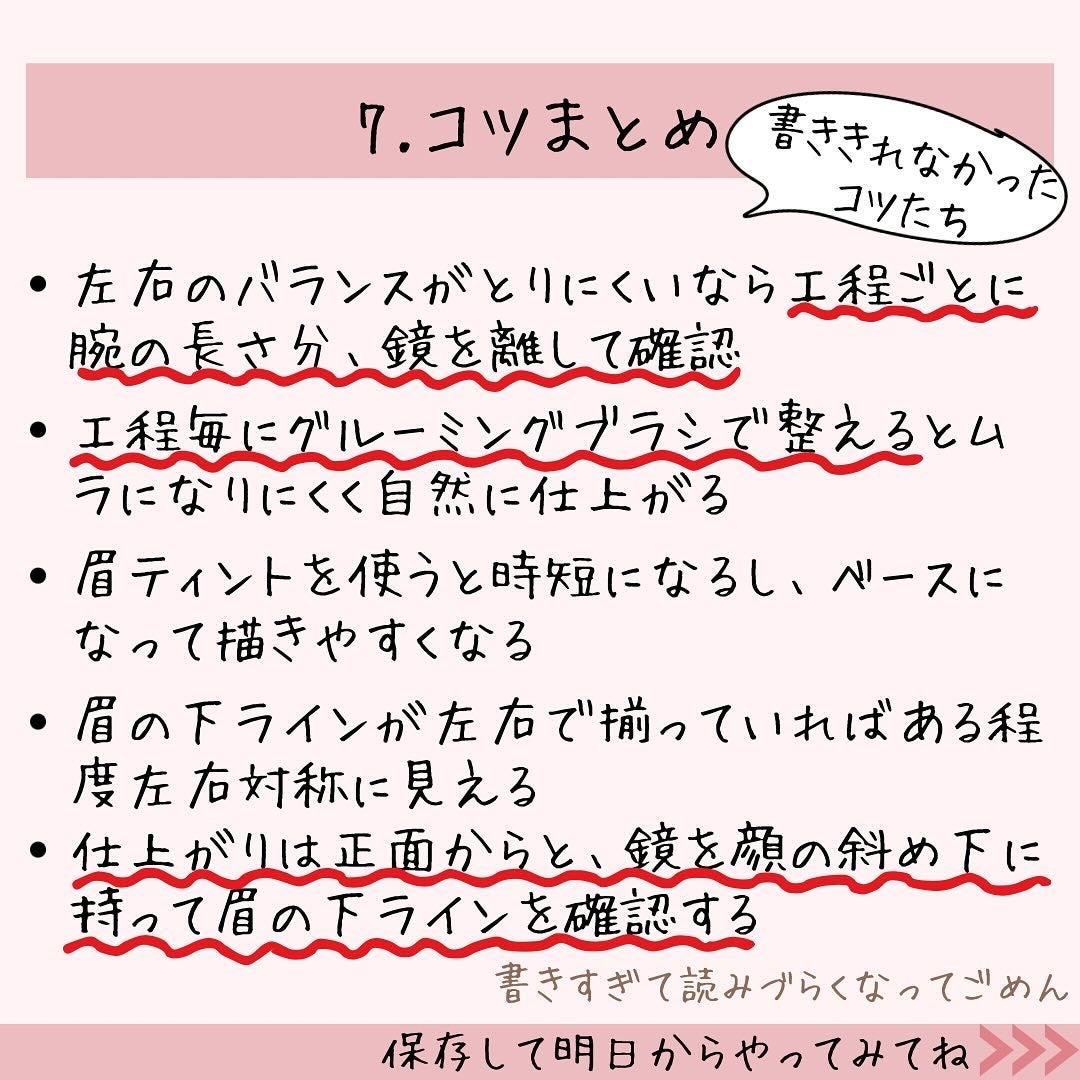 7.コツまとめ
書ききれなかった
コツたち
• 左右のバランスがとりにくいなら工程ごとに
腕の長さ分、鏡を離して確認
• 工程毎にグルーミングブラシで整えるとム
ラになりにくく自然に仕上がる
• 眉ティントを使うと時短になるし、ベースに
なって描きやすくなる
• 眉の下ラインが左右で揃っていればある程
度左右対称に見える
• 仕上がりは正面からと、鏡を顔の斜め下に
持って眉の下ラインを確認する
書きすぎて読みづらくなってごめん
保存して明日からやってみてね